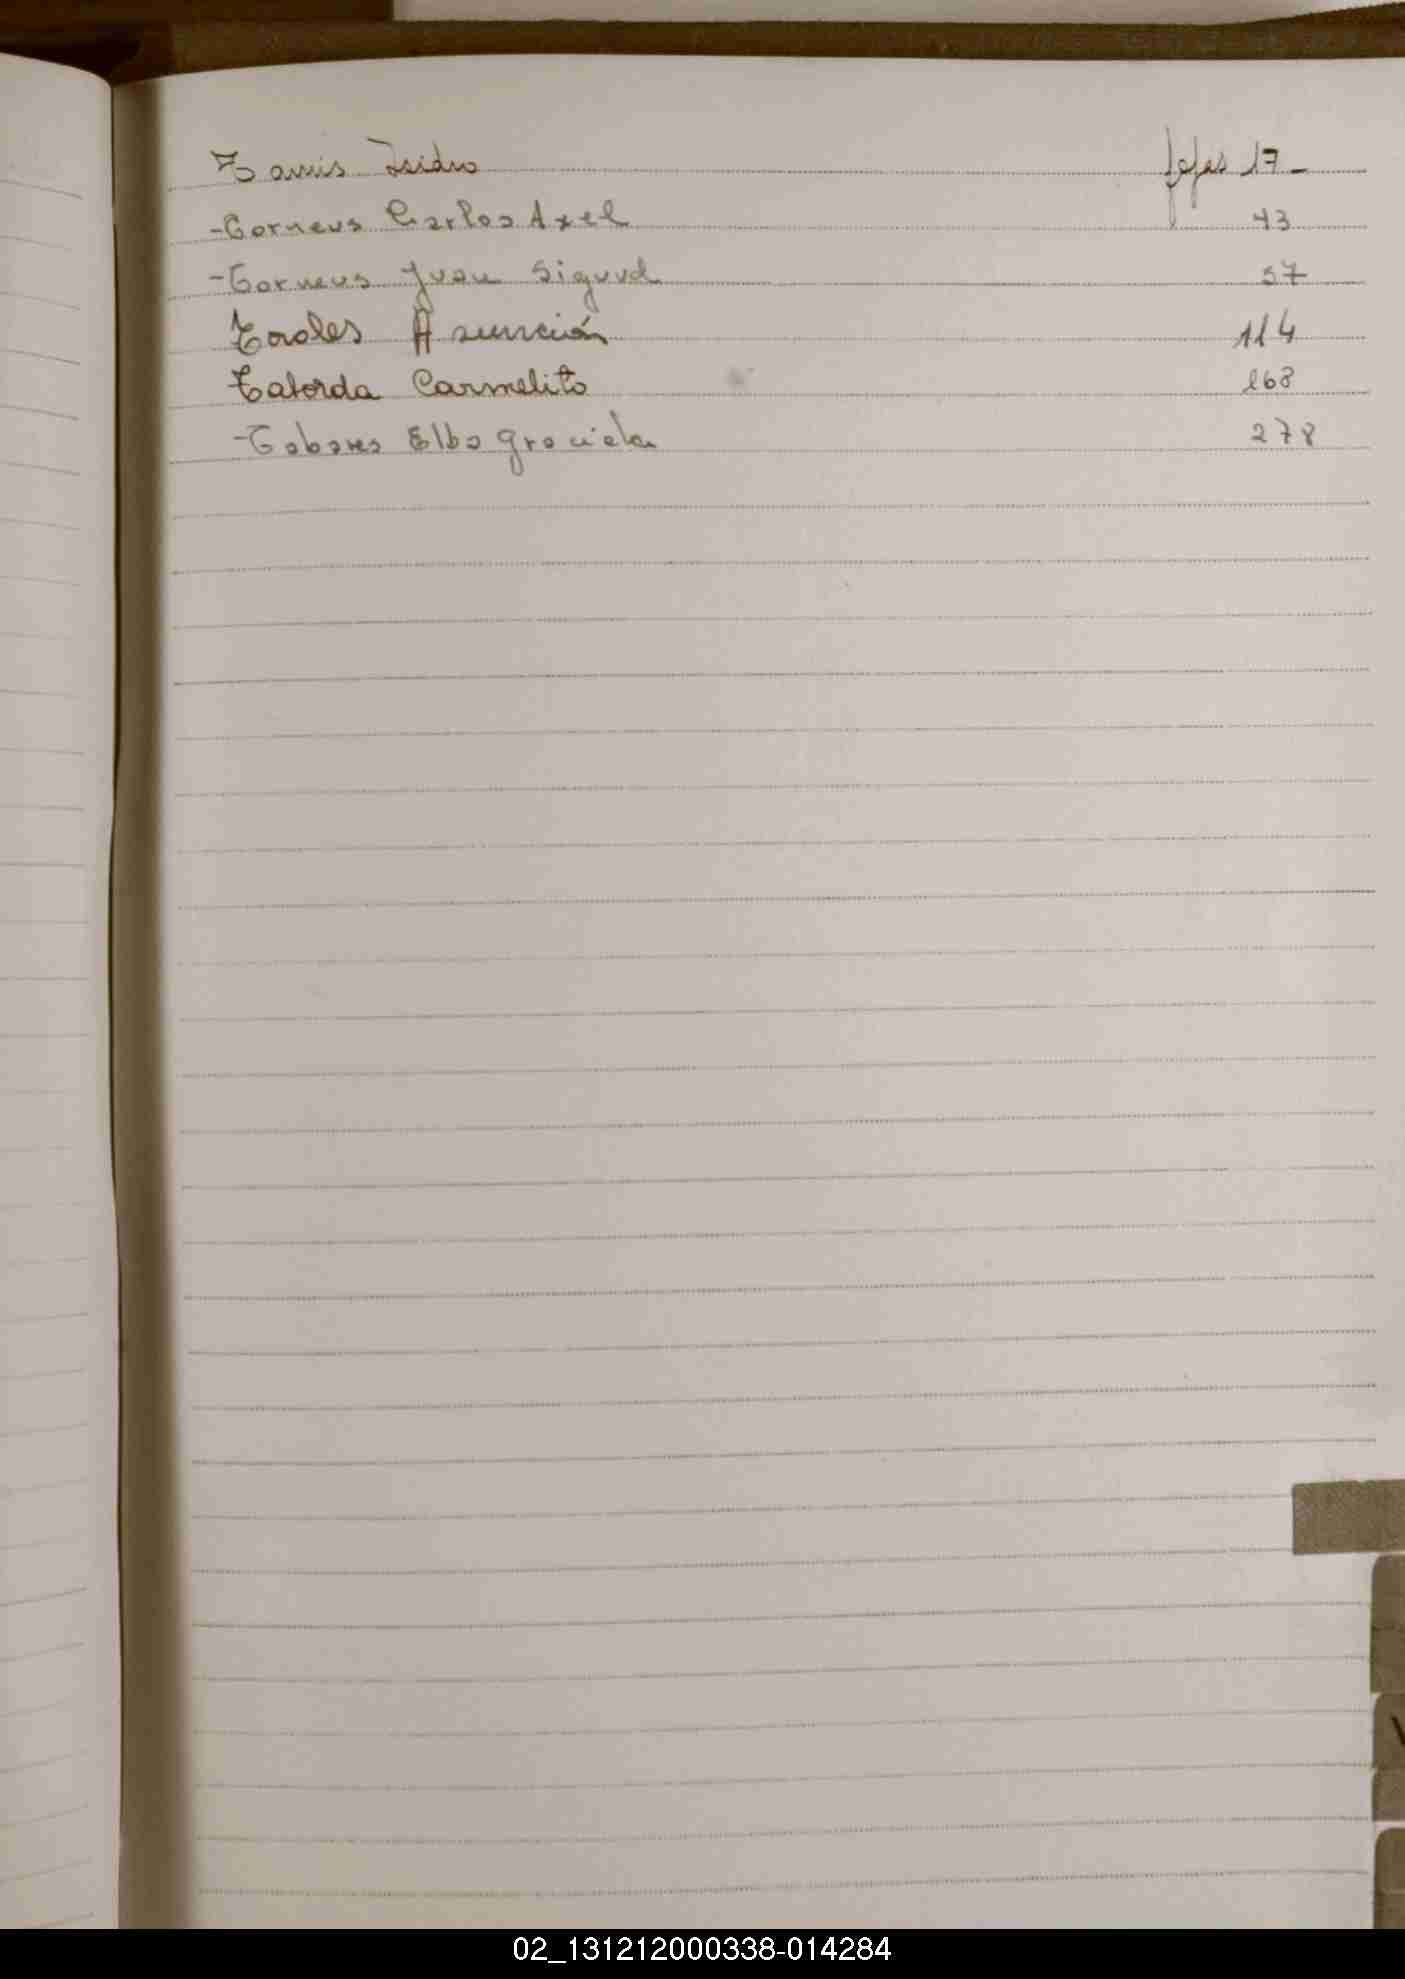 Tamis Isidro fojas 17-
-Torneus Carlos Axel 43
-Torneus Juan Siguud 57
Toroles Asunción 114
Taborda Carmelito 168
-Tabares Elba Graciela 278
V
02_131212000338-014284